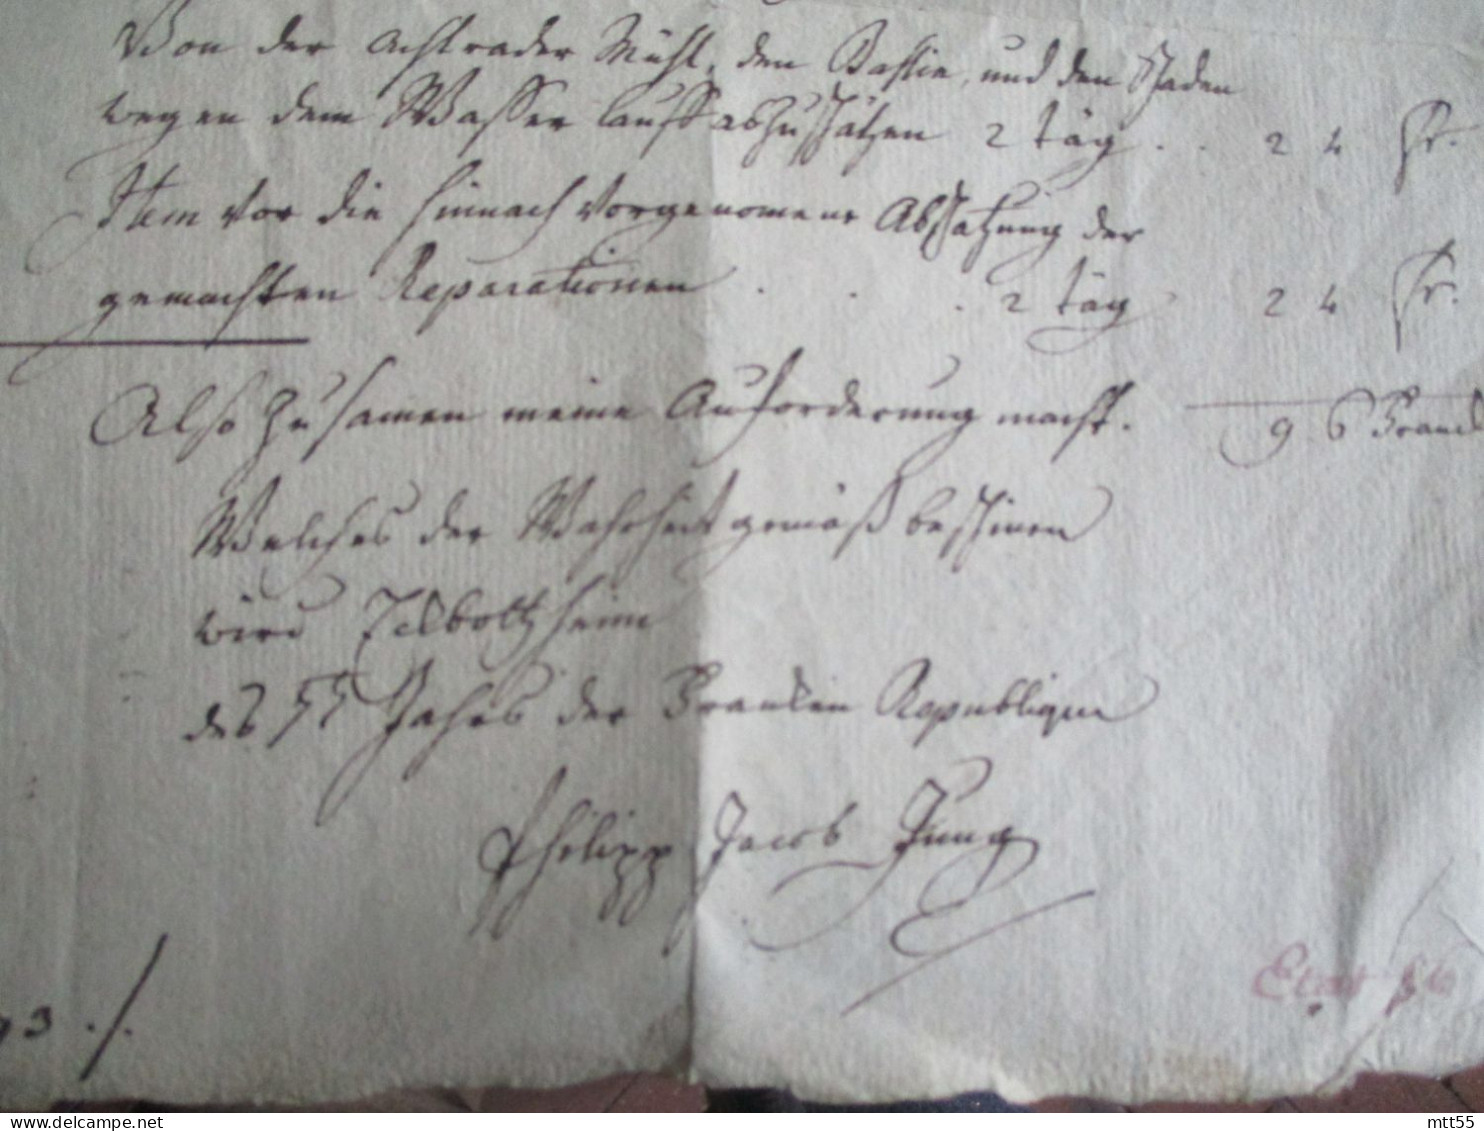 Von der Achtrader Mühl, den Bastie, und den Schaden
wegen dem Wasser lauff abzuschätzen 2 täg . . 2 4 fr.
Item vor die hinnach vorgenomene Abschatzung der
gemachten Reparationen . . . 2 täg 2 4 fr.
Also Zusamen meine Aufforderung macht. 96 Franck
Welches der Wahrheit gemäß bescheinen
wird
des Jahrs der Francken Republique
Philipp Jacob Jung
Etat
93 ./.
mtt55